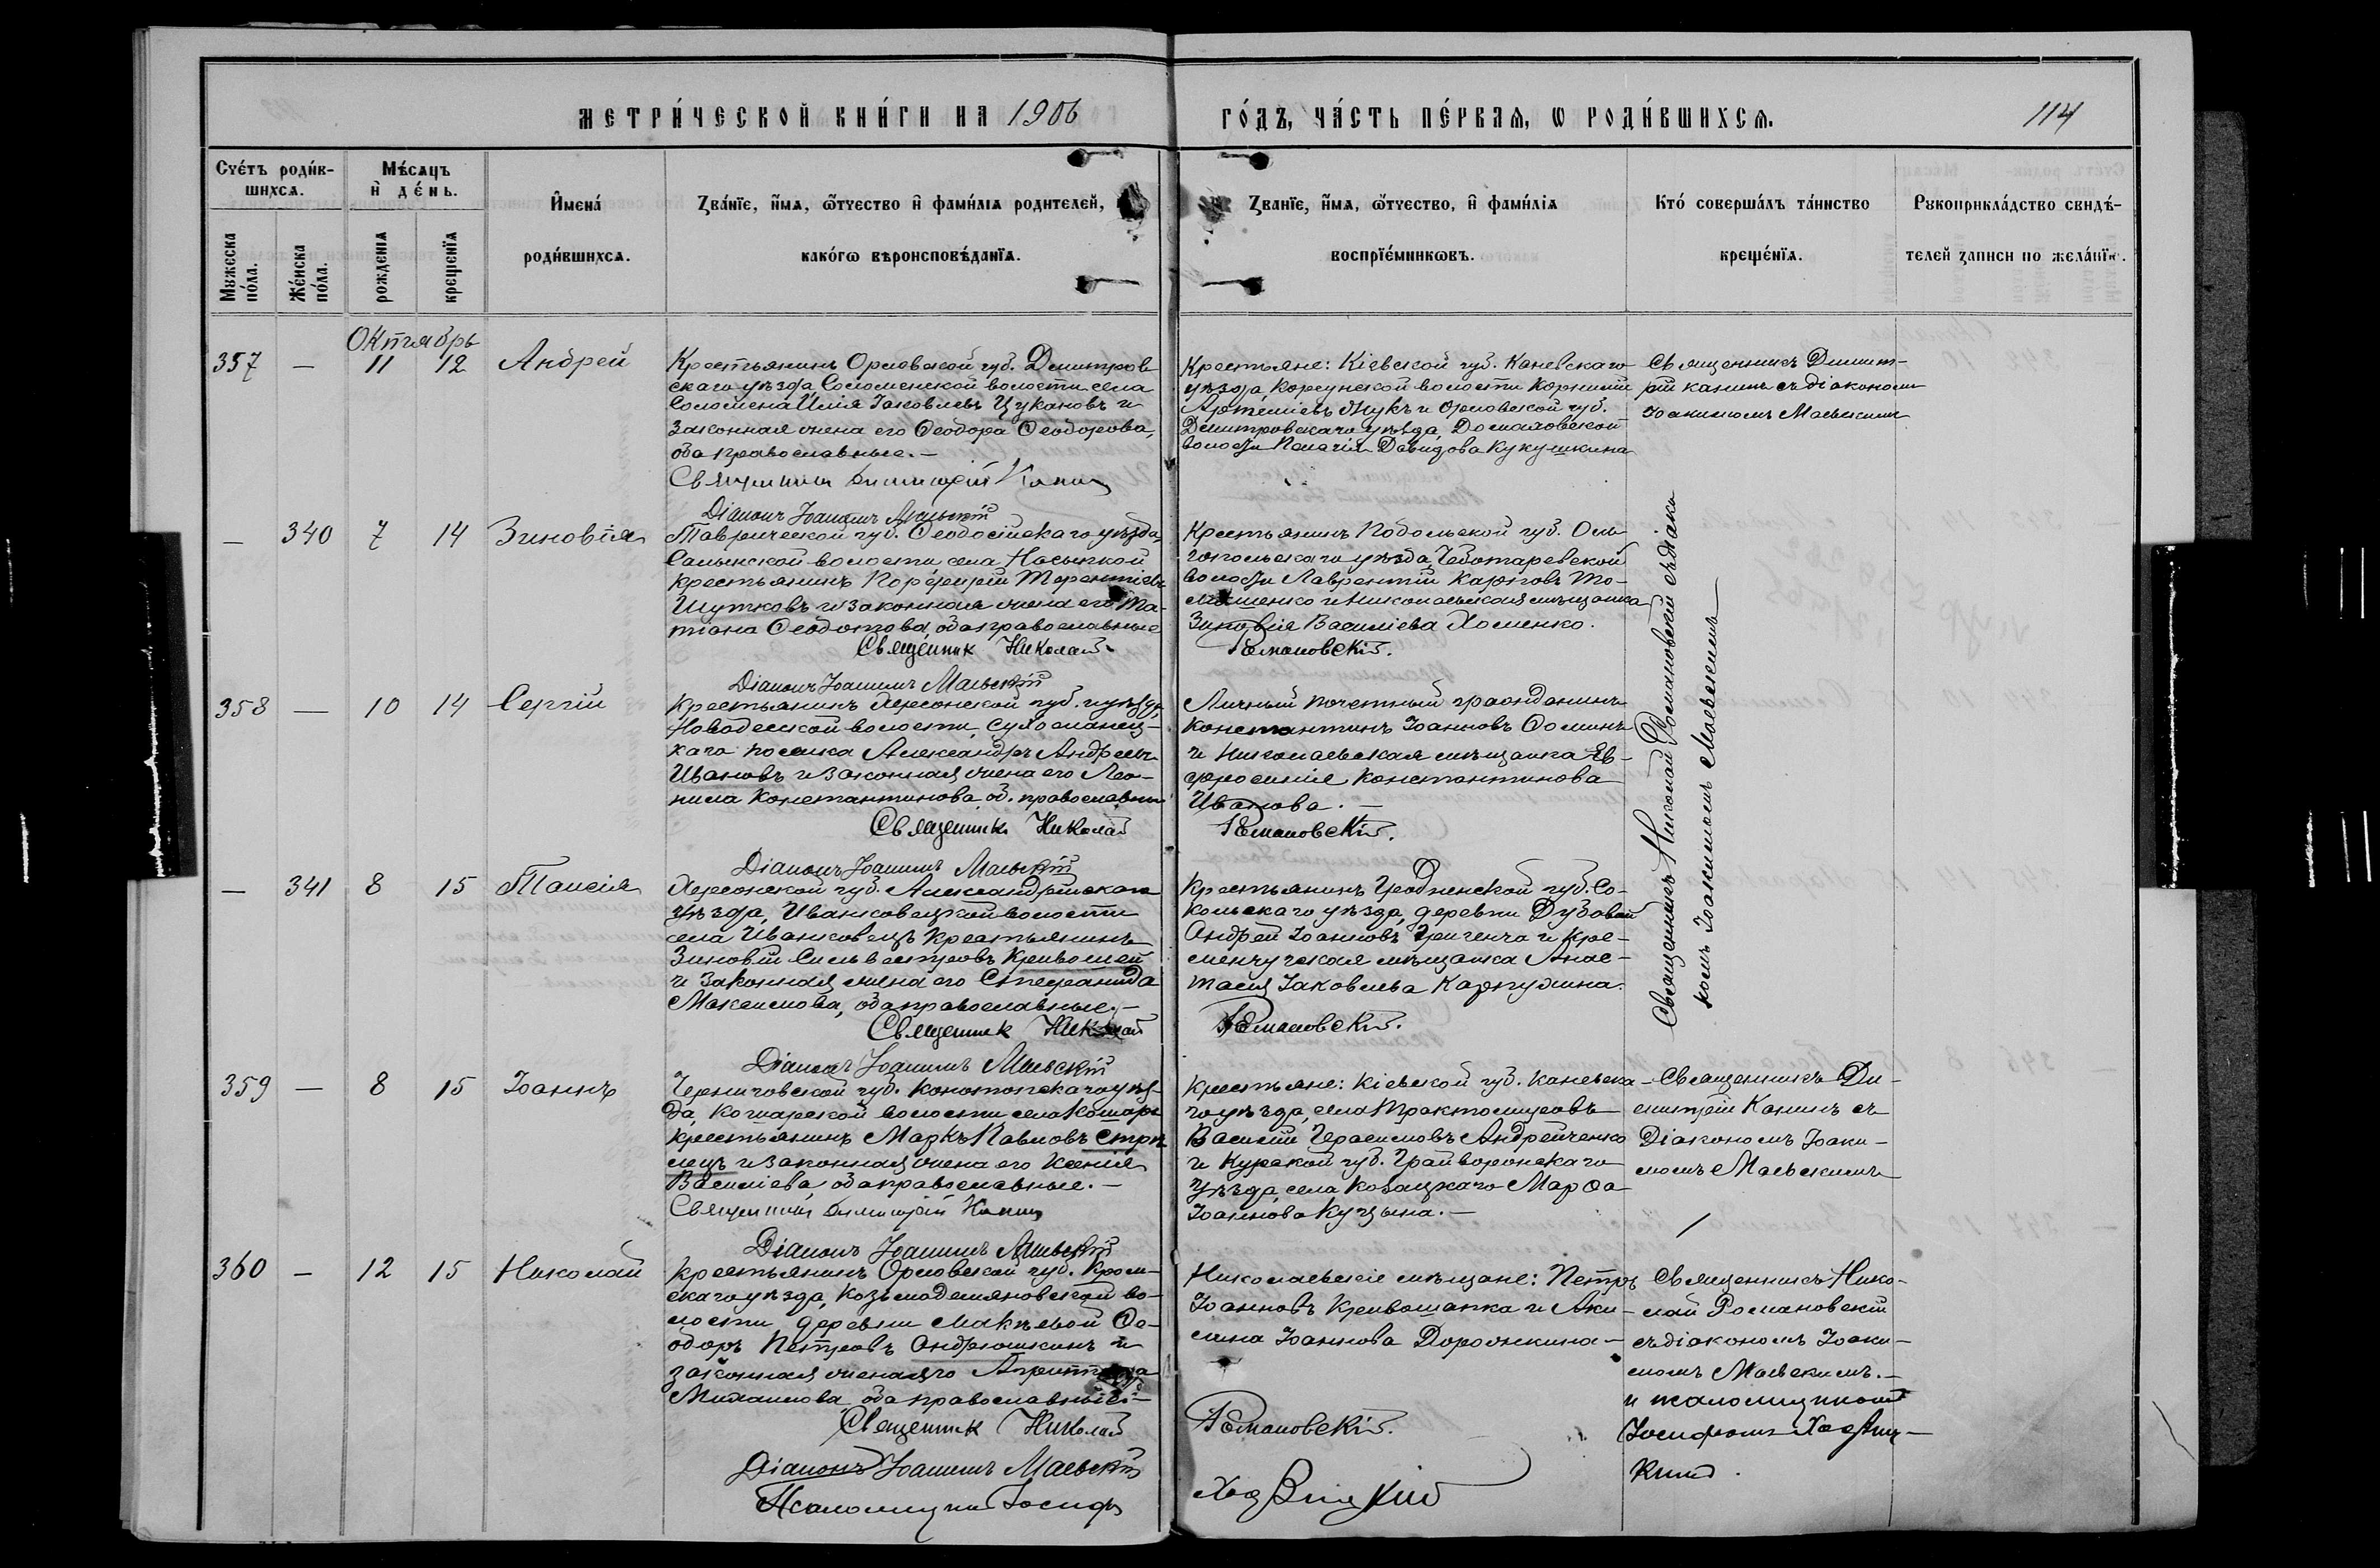 МЕТРИ́ЧЕСКОЙ КНИ́ГИ НА 1906
ГО́ДЪ, ЧА́СТЬ ПЕ́РВАѦ, Ѡ РОДИ́ВШИХСѦ.
114
Счетъ роди́в-
шихсѧ.
Мѣ́сѧцъ
и҆ де́нь.
Мꙋжеска
по́ла.
Же́нска
по́ла.
рожденїѧ
крещенїѧ
И҆мена́
роди́вшихсѧ.
Зва́нїе, и҆́мѧ, ѻ҆́тчество и҆ фами́лїѧ родителей,
како́гѡ вѣроисповѣ́данїѧ.
Зва́нїе, и҆́мѧ, ѻ҆́тчество, и҆ фами́лїѧ
воспрїе́мникѡвъ.
Кто́ соверша́лъ та́инство
креще́нїѧ.
Рꙋкоприкла́дство свидѣ́-
телей записи по жела́нїю.
Октябрь
357 — 11 12 Андрей
Крестьянинъ Орловской губ. Димитров
скаго уѣзда, Соломенской волости села
Соломена Илія Іаковлевъ Цукановъ и
законная жена его Ѳеодора Ѳеодорова,
оба православные. —
Священникъ Димитрій Канинъ
Діаконъ Іоакимъ Маевскій
Крестьяне: Кіевской губ. Каневскаго
уѣзда, Корсунской волости Корнилій
Артеміевъ Жукъ и Орловской губ.
Димитровскаго уѣзда, Домаховской
волости Пелагія Давидова Кукушкина
Священникъ Димит-
рій Канинъ съ діакономъ
Іоакимомъ Маевскимъ
— 340 7 14 Зиновія
Таврической губ. Ѳеодосійскаго уѣзда,
Салынской волости села Насыпной
крестьянинъ Порфирій Терентіевъ
Шутковъ и законная жена его Та-
тіана Ѳеодотова, оба православные
Священник Николай
Діаконъ Іоакимъ Маевскій
Крестьянинъ Подольской губ. Оль-
гопольскаго уѣзда, Чеботаревской
волости Лаврентій Карповъ То-
машенко и Николаевская мѣщанка
Зиновія Василіева Хоменко.
Романовскій.
Священникъ Николай Романовскій съ діако
номъ Іоакимомъ Маевскимъ
358 — 10 14 Сергій
Крестьянинъ Херсонской губ. и уѣзда,
Новоодесской волости, Сухоеланец-
каго поселка Александръ Андреевъ
Ивановъ и законная жена его Лео-
нила Константинова, об. православные
Священникъ Николай
Діаконъ Іоакимъ Маевскій
Личный почетный гражданинъ
Константинъ Іоанновъ Ѳоминъ
и Николаевская мѣщанка Ев-
фросинія Константинова
Иванова. —
Романовскій.
— 341 8 15 Таисія
Херсонской губ. Александрійскаго
уѣзда, Ивановецкой волости
села Ивановецъ крестьянинъ
Зиновій Сильвестровъ Кривошей
и законная жена его Стефанида
Максимова, оба православные. —
Священник Николай
Діаконъ Іоакимъ Маевскій
Крестьянинъ Гродненской губ. Со-
кольскаго уѣзда, деревни Дубовой
Андрей Іоанновъ и Кре-
менчугская мѣщанка Анас-
тасія Іаковлева Карпухина.
Романовскій.
359 — 8 15 Іоаннъ
Черниговской губ. Конотопскаго уѣз-
да, Кошарской волости села Кошаръ
крестьянинъ Маркъ Павловъ Стрѣ
лецъ и законная жена его Ксенія
Василіева, оба православные. —
Священникъ Димитрій Канинъ
Діаконъ Іоакимъ Маевскій
Крестьяне: Кіевской губ. Каневска-
го уѣзда, села Трактомировъ
Василій Герасимовъ Андрейченко
и Курской губ. Грайворонскаго
уѣзда, села Козацкаго Марѳа
Іоаннова Куцына. —
Священникъ Ди-
митрій Канинъ съ
Діакономъ Іоаки-
момъ Маевскимъ
360 — 12 15 Николай
Крестьянинъ Орловской губ. Кром-
скаго уѣзда, Козьмодемяновской во-
лости, деревни Макѣевой Ѳе-
одоръ Петровъ Андрюшкинъ и
законная жена его Агриппина
Михаилова, оба православные —
Священник Николай
Діаконъ Іоакимъ Маевскій
Псаломщикъ Іосифъ
Николаевскіе мѣщане: Петръ
Іоанновъ Кривошапка и Аки-
лина Іоаннова Дорожкина —
Романовскій.
Ходвицкій
Священникъ Нико-
лай Романовскій
съ діакономъ Іоаки-
момъ Маевскимъ. —
и псаломщикомъ
Іосифомъ Ходвиц-
кимъ.